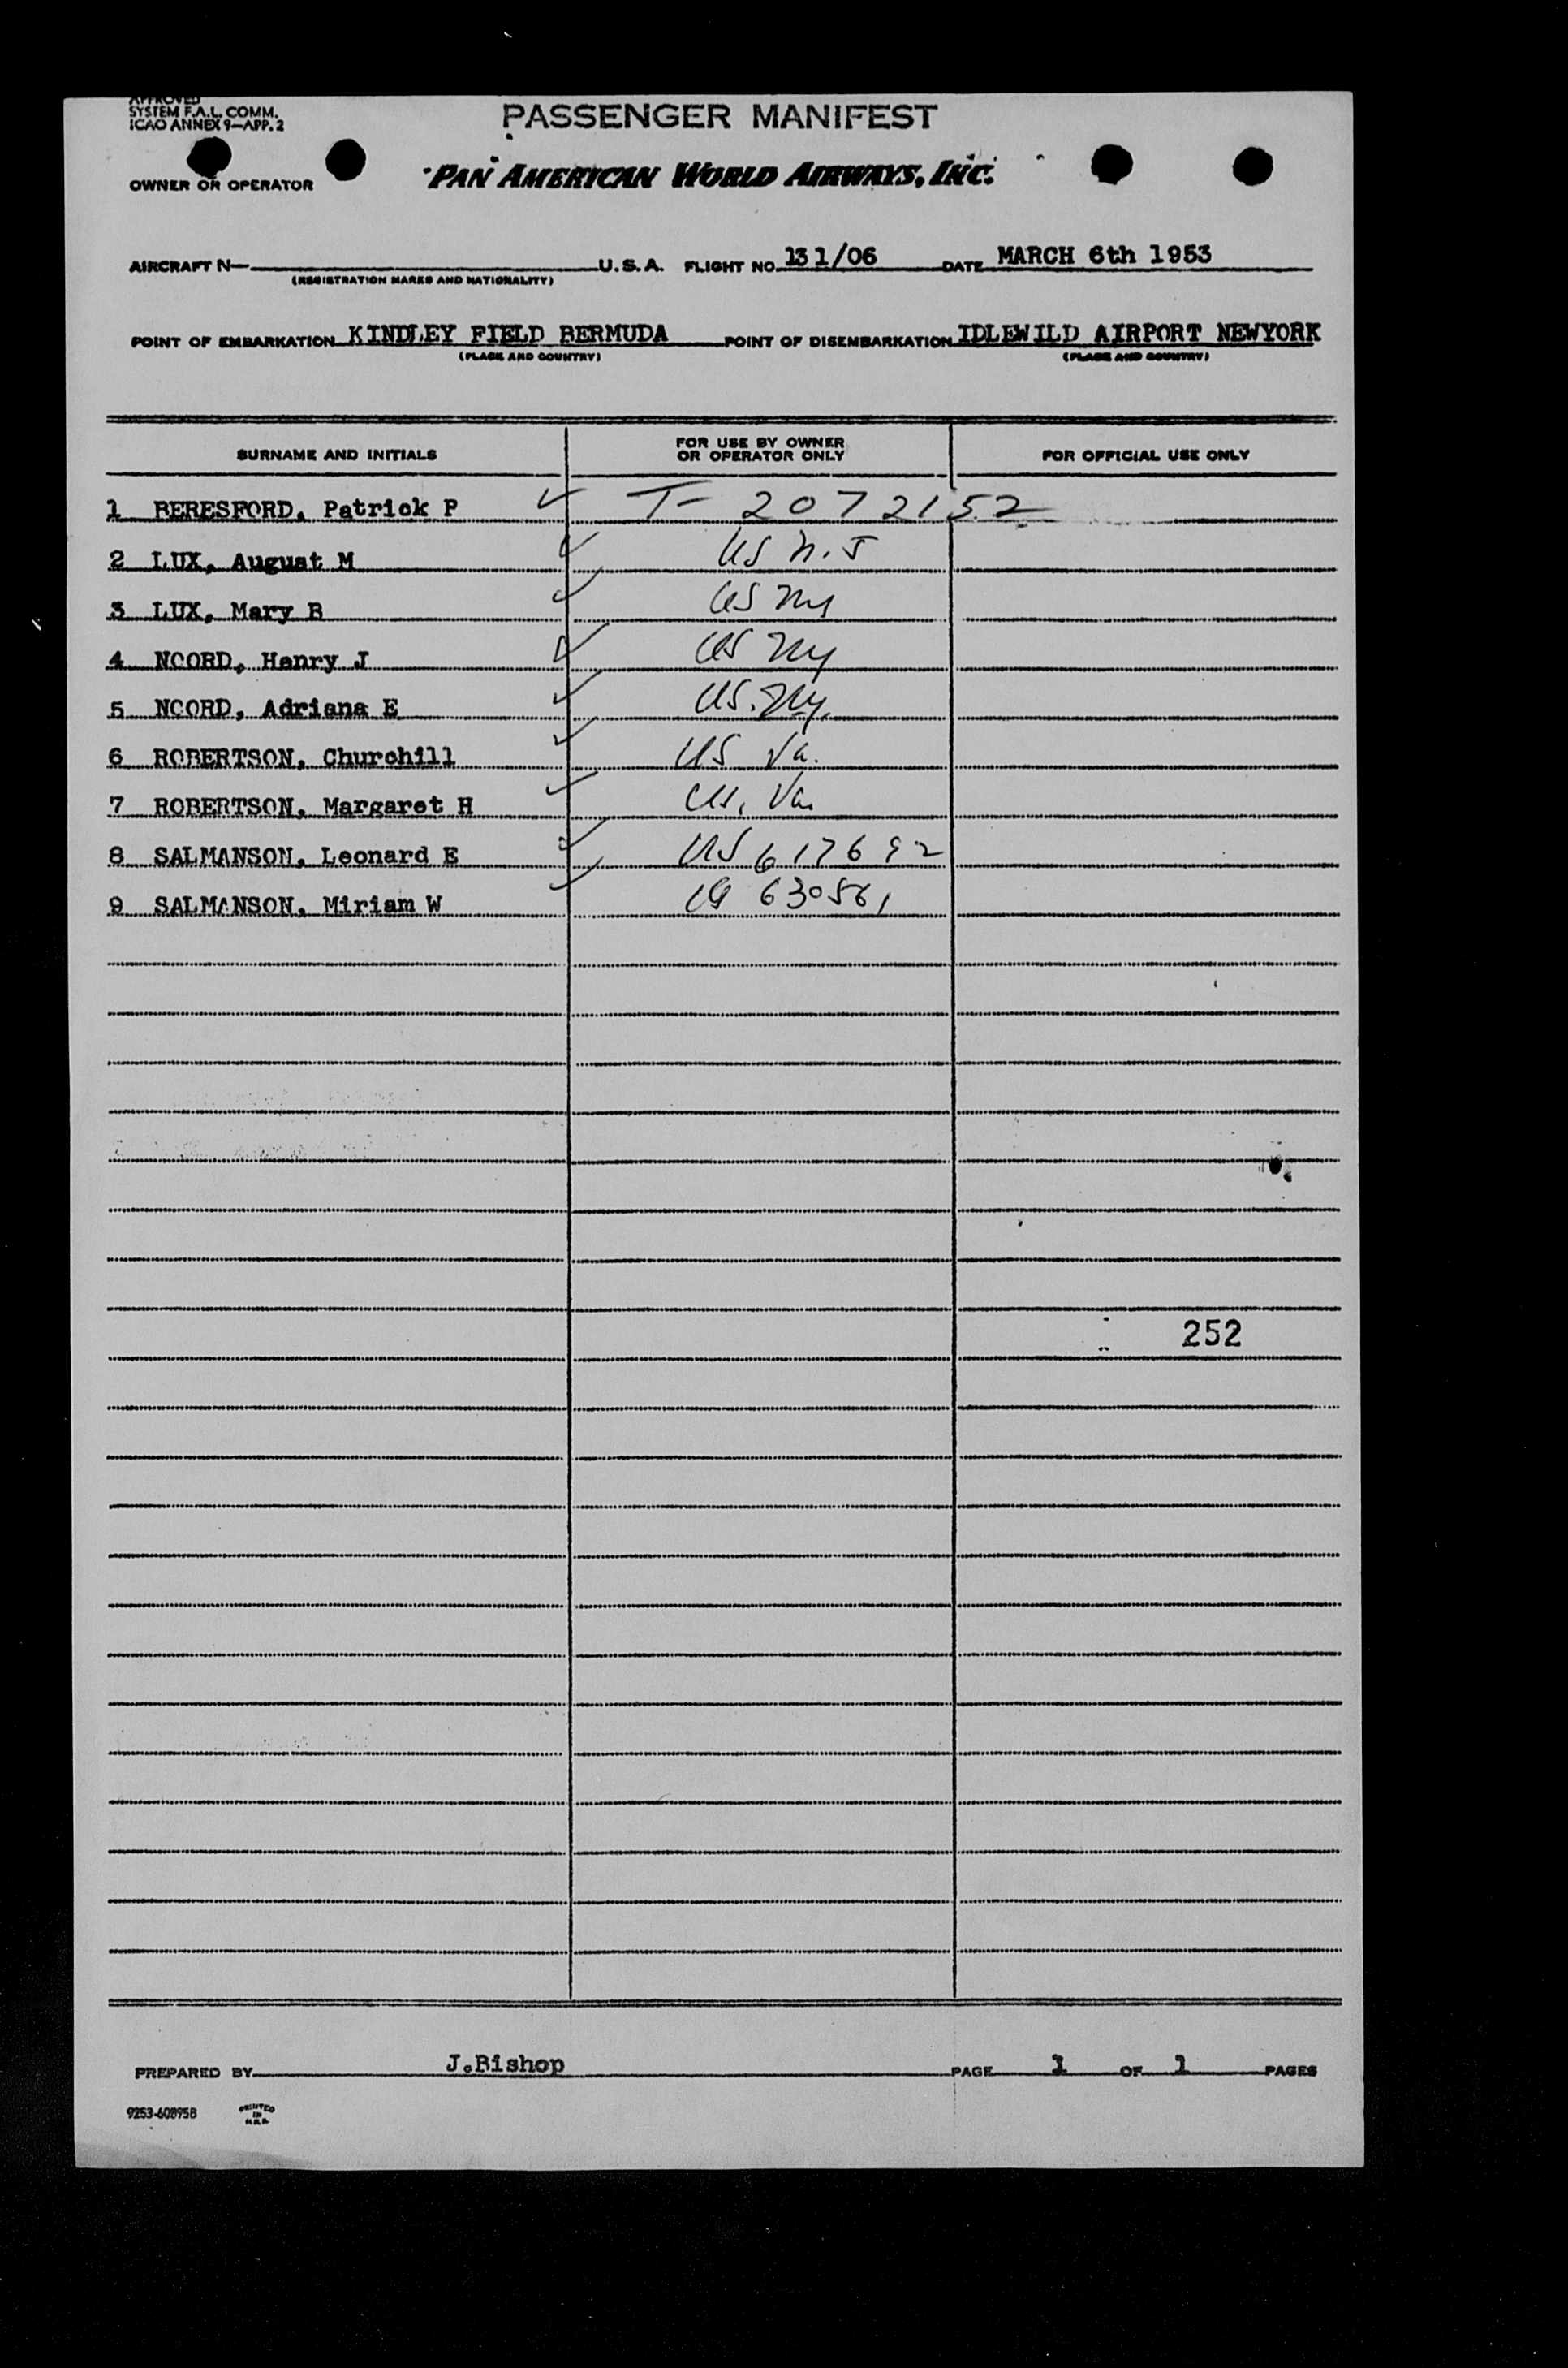 APPROVED
SYSTEM F.A.L. COMM.
ICAO ANNEX 9—APP. 2
PASSENGER MANIFEST
OWNER OR OPERATOR PAN AMERICAN WORLD AIRWAYS, INC.
AIRCRAFT N— U.S.A. FLIGHT NO. 131/06 DATE MARCH 6th 1953
(REGISTRATION MARKS AND NATIONALITY)
POINT OF EMBARKATION KINDLEY FIELD BERMUDA POINT OF DISEMBARKATION IDLEWILD AIRPORT NEWYORK
(PLACE AND COUNTRY) (PLACE AND COUNTRY)
SURNAME AND INITIALS FOR USE BY OWNER OR OPERATOR ONLY FOR OFFICIAL USE ONLY
1 BERESFORD, Patrick P ✓ T- 2072152
2 LUX, August M ✓ US N.J
3 LUX, Mary B ✓ US NY
4 NOORD, Henry J ✓ US NY
5 NOORD, Adriana E ✓ US. NY.
6 ROBERTSON, Churchill ✓ US Va.
7 ROBERTSON, Margaret H ✓ US. Va.
8 SALMANSON, Leonard E ✓ US 617692
9 SALMANSON, Miriam W ✓ US 630561
252
PREPARED BY J.Bishop PAGE 1 OF 1 PAGES
9253-60895B PRINTED IN U.S.A.